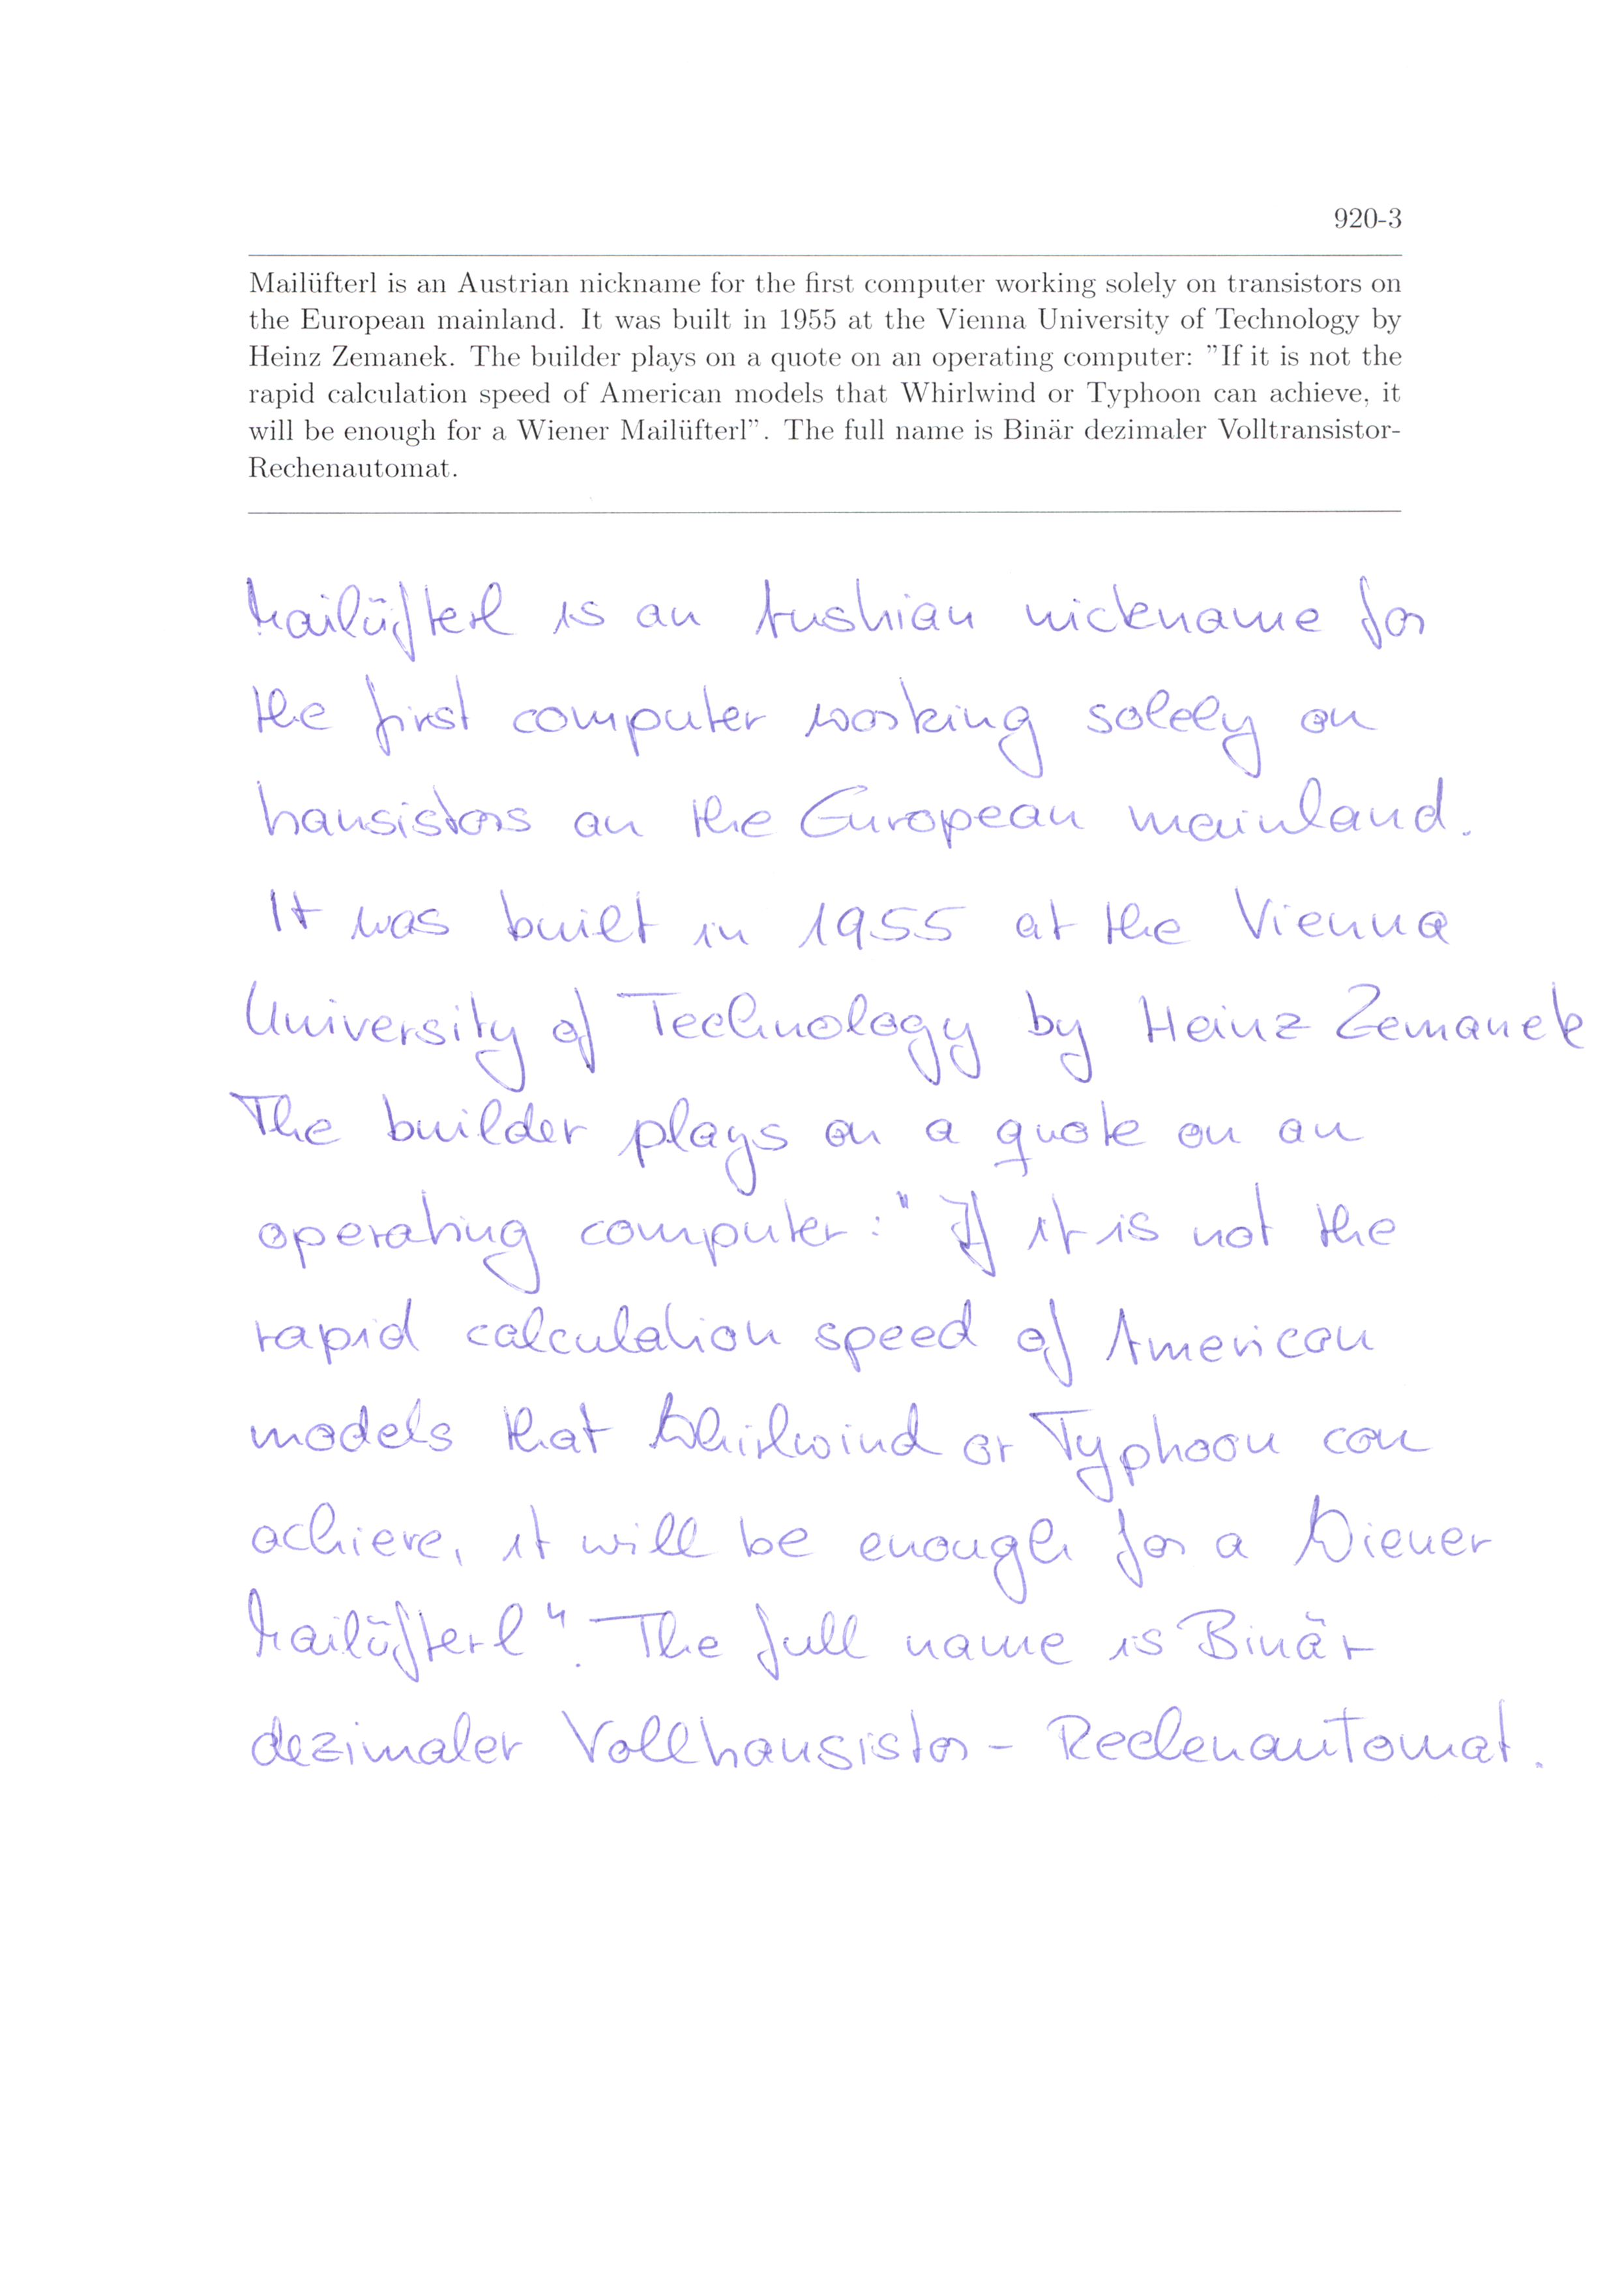 920-3
Mailüfterl is an Austrian nickname for the first computer working solely on transistors on
the European mainland. It was built in 1955 at the Vienna University of Technology by
Heinz Zemanek. The builder plays on a quote on an operating computer: "If it is not the
rapid calculation speed of American models that Whirlwind or Typhoon can achieve, it
will be enough for a Wiener Mailüfterl". The full name is Binär dezimaler Volltransistor-
Rechenautomat.
Mailüfterl is an Austrian nickname for
the first computer working solely on
transistors on the European mainland.
It was built in 1955 at the Vienna
University of Technology by Heinz Zemanek
The builder plays on a quote on an
operating computer: "If it is not the
rapid calculation speed of American
models that Whirlwind or Typhoon can
achieve, it will be enough for a Wiener
Mailüfterl". The full name is Binär
dezimaler Volltransistor - Rechenautomat.